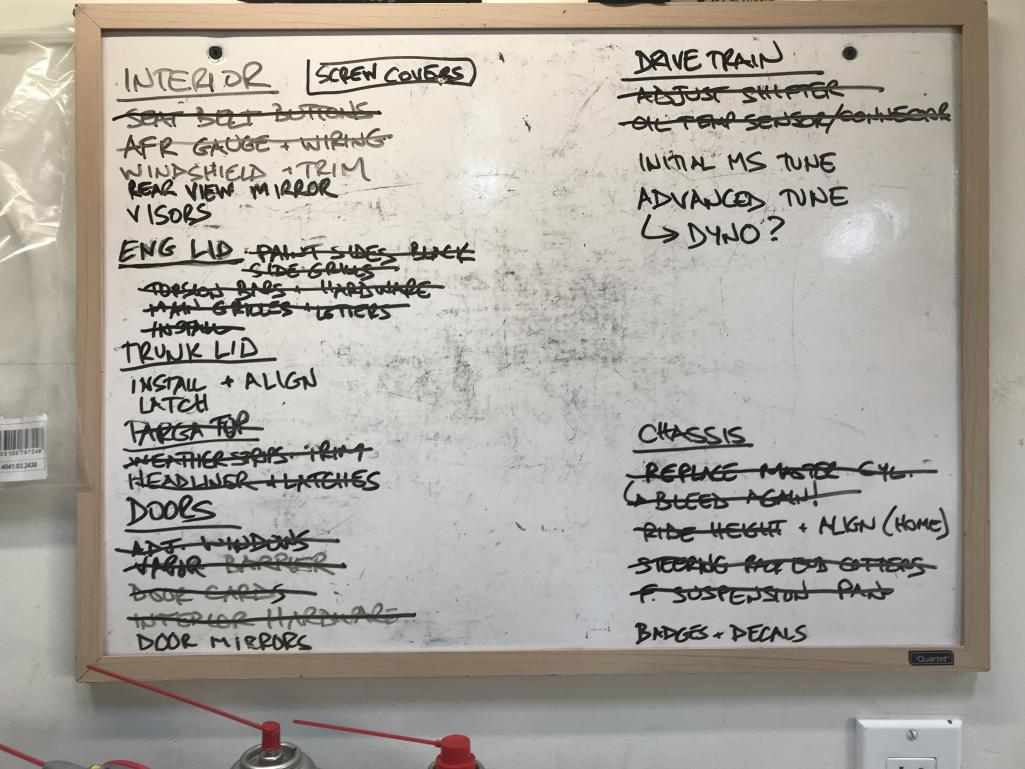 INTERIOR
SCREW COVERS
SEAT BELT BUTTONS
AFR GAUGE + WIRING
WINDSHIELD + TRIM
REAR VIEW MIRROR
VISORS
ENG LID - PAINT SIDES BLACK
- SIDE GRILLS
- TORSION BARS + HARDWARE
- MAIN GRILLES + LETTERS
- INSTALL
TRUNK LID
INSTALL + ALIGN
LATCH
TARGA TOP
WEATHERSTRIPS + TRIM
HEADLINER + LATCHES
DOORS
ADJ. WINDOWS
VAPOR BARRIER
DOOR CARDS
INTERIOR HARDWARE
DOOR MIRRORS
DRIVE TRAIN
ADJUST SHIFTER
OIL TEMP SENSOR/CONNECTOR
INITIAL MS TUNE
ADVANCED TUNE
↳ DYNO?
CHASSIS
REPLACE MASTER CYL.
↳ BLEED AGAIN!
RIDE HEIGHT + ALIGN (HOME)
STEERING RACK END COTTERS
F. SUSPENSION PAN
BADGES + DECALS
"Quartet"
4041.03.2438